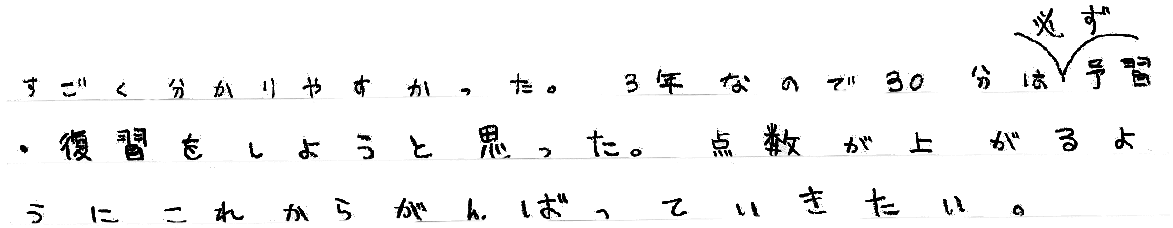 すごく分かりやすかった。3年なので30分は必ず予習
・復習をしようと思った。点数が上がるよ
うにこれからがんばっていきたい。